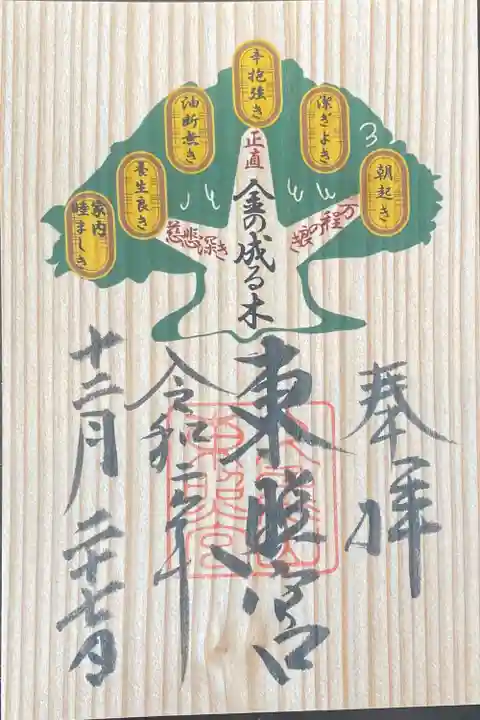 奉拝
朝起き
潔ぎよき
辛抱強き
油断無き
養生良き
家内
睦ましき
万程の良き
正直
慈悲深き
金の成る木
東照宮
令和年
十二月二十七日